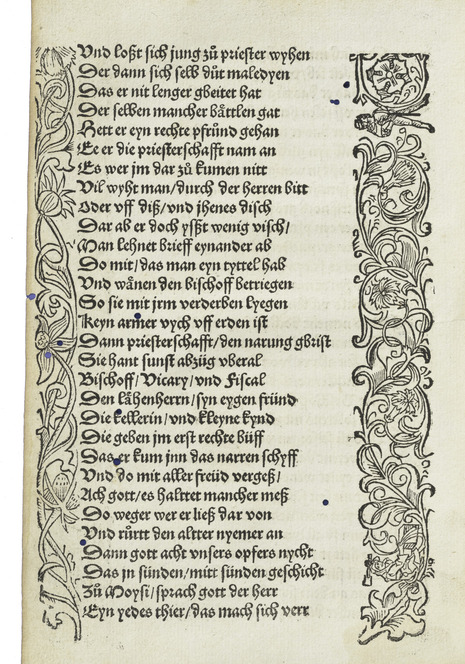 Vnd loßt sich jung zů priester wyhen
Der dann sich selb důt maledyen
Das er nit lenger gbeitet hat
Der selben mancher båttlen gat
Hett er eyn rechte pfründ gehan
Ee er die priesterschafft nam an
Es wer jm dar zů kumen nitt
Vil wyht man/durch der herren bitt
Oder vff diß/vnd jhenes disch
Dar ab er doch yßßt wenig visch/
Man lehnet brieff eynander ab
Do mit/das man eyn tyttel hab
Vnd wånen den bischoff betriegen
So sie mit jrm verderben lyegen
Keyn armer vych vff erden ist
Dann priesterschafft/den narung gbrist
Sie hant sunst abzüg vberal
Bischoff/Vicary/vnd Fiscal
Den låhenherrn/syn eygen fründ
Die kellerin/vnd kleyne kynd
Die geben jm erst rechte büff
Das er kum jnn das narren schyff
Vnd do mit aller freüd vergeß/
Ach gott/es haltter mancher meß
Do weger wer er ließ dar von
Vnd růrtt den altter nyemer an
Dann gott acht vnsers opfers nycht
Das jn sünden/mitt sünden geschicht
Zů Moysi/sprach gott der herr
Eyn yedes thier/das mach sich verr